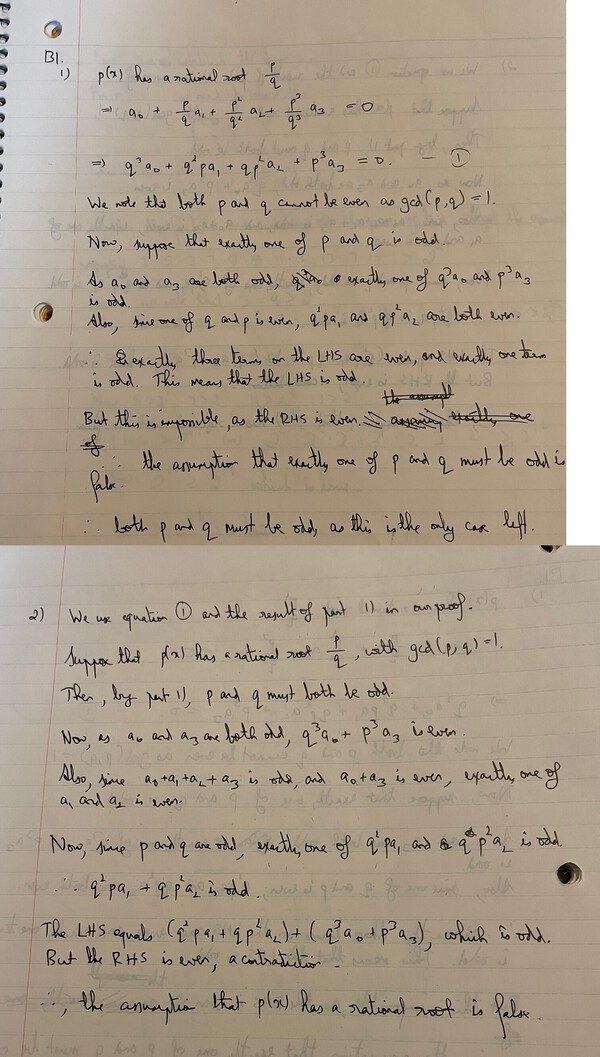 B1.
1) p(x) has a rational root p/q
⇒ a₀ + p/q a₁ + p²/q² a₂ + p³/q³ a₃ = 0
⇒ q³a₀ + q²pa₁ + qp²a₂ + p³a₃ = 0. — ①
We note that both p and q cannot be even as gcd(p,q) = 1.
Now, suppose that exactly one of p and q is odd.
As a₀ and a₃ are both odd, exactly one of q³a₀ and p³a₃
is odd.
Also, since one of q and p is even, q²pa₁ and qp²a₂ are both even.
∴ exactly three terms on the LHS are even, and exactly one term
is odd. This means that the LHS is odd.
the assumpt
But this is impossible, as the RHS is even. assuming exactly one
of
∴ the assumption that exactly one of p and q must be odd is
false.
∴ both p and q must be odd, as this is the only case left.
2) We use equation ① and the result of part 1) in our proof.
Suppose that p(x) has a rational root p/q, with gcd(p,q)=1.
Then, by part 1), p and q must both be odd.
Now, as a₀ and a₃ are both odd, q³a₀ + p³a₃ is even.
Also, since a₀+a₁+a₂+a₃ is odd, and a₀+a₃ is even, exactly one of
a₁ and a₂ is even.
Now, since p and q are odd, exactly one of q²pa₁ and qp²a₂ is odd.
∴ q²pa₁ + qp²a₂ is odd.
The LHS equals (q²pa₁+qp²a₂)+(q³a₀+p³a₃), which is odd.
But the RHS is even, a contradiction.
∴, the assumption that p(x) has a rational root is false.